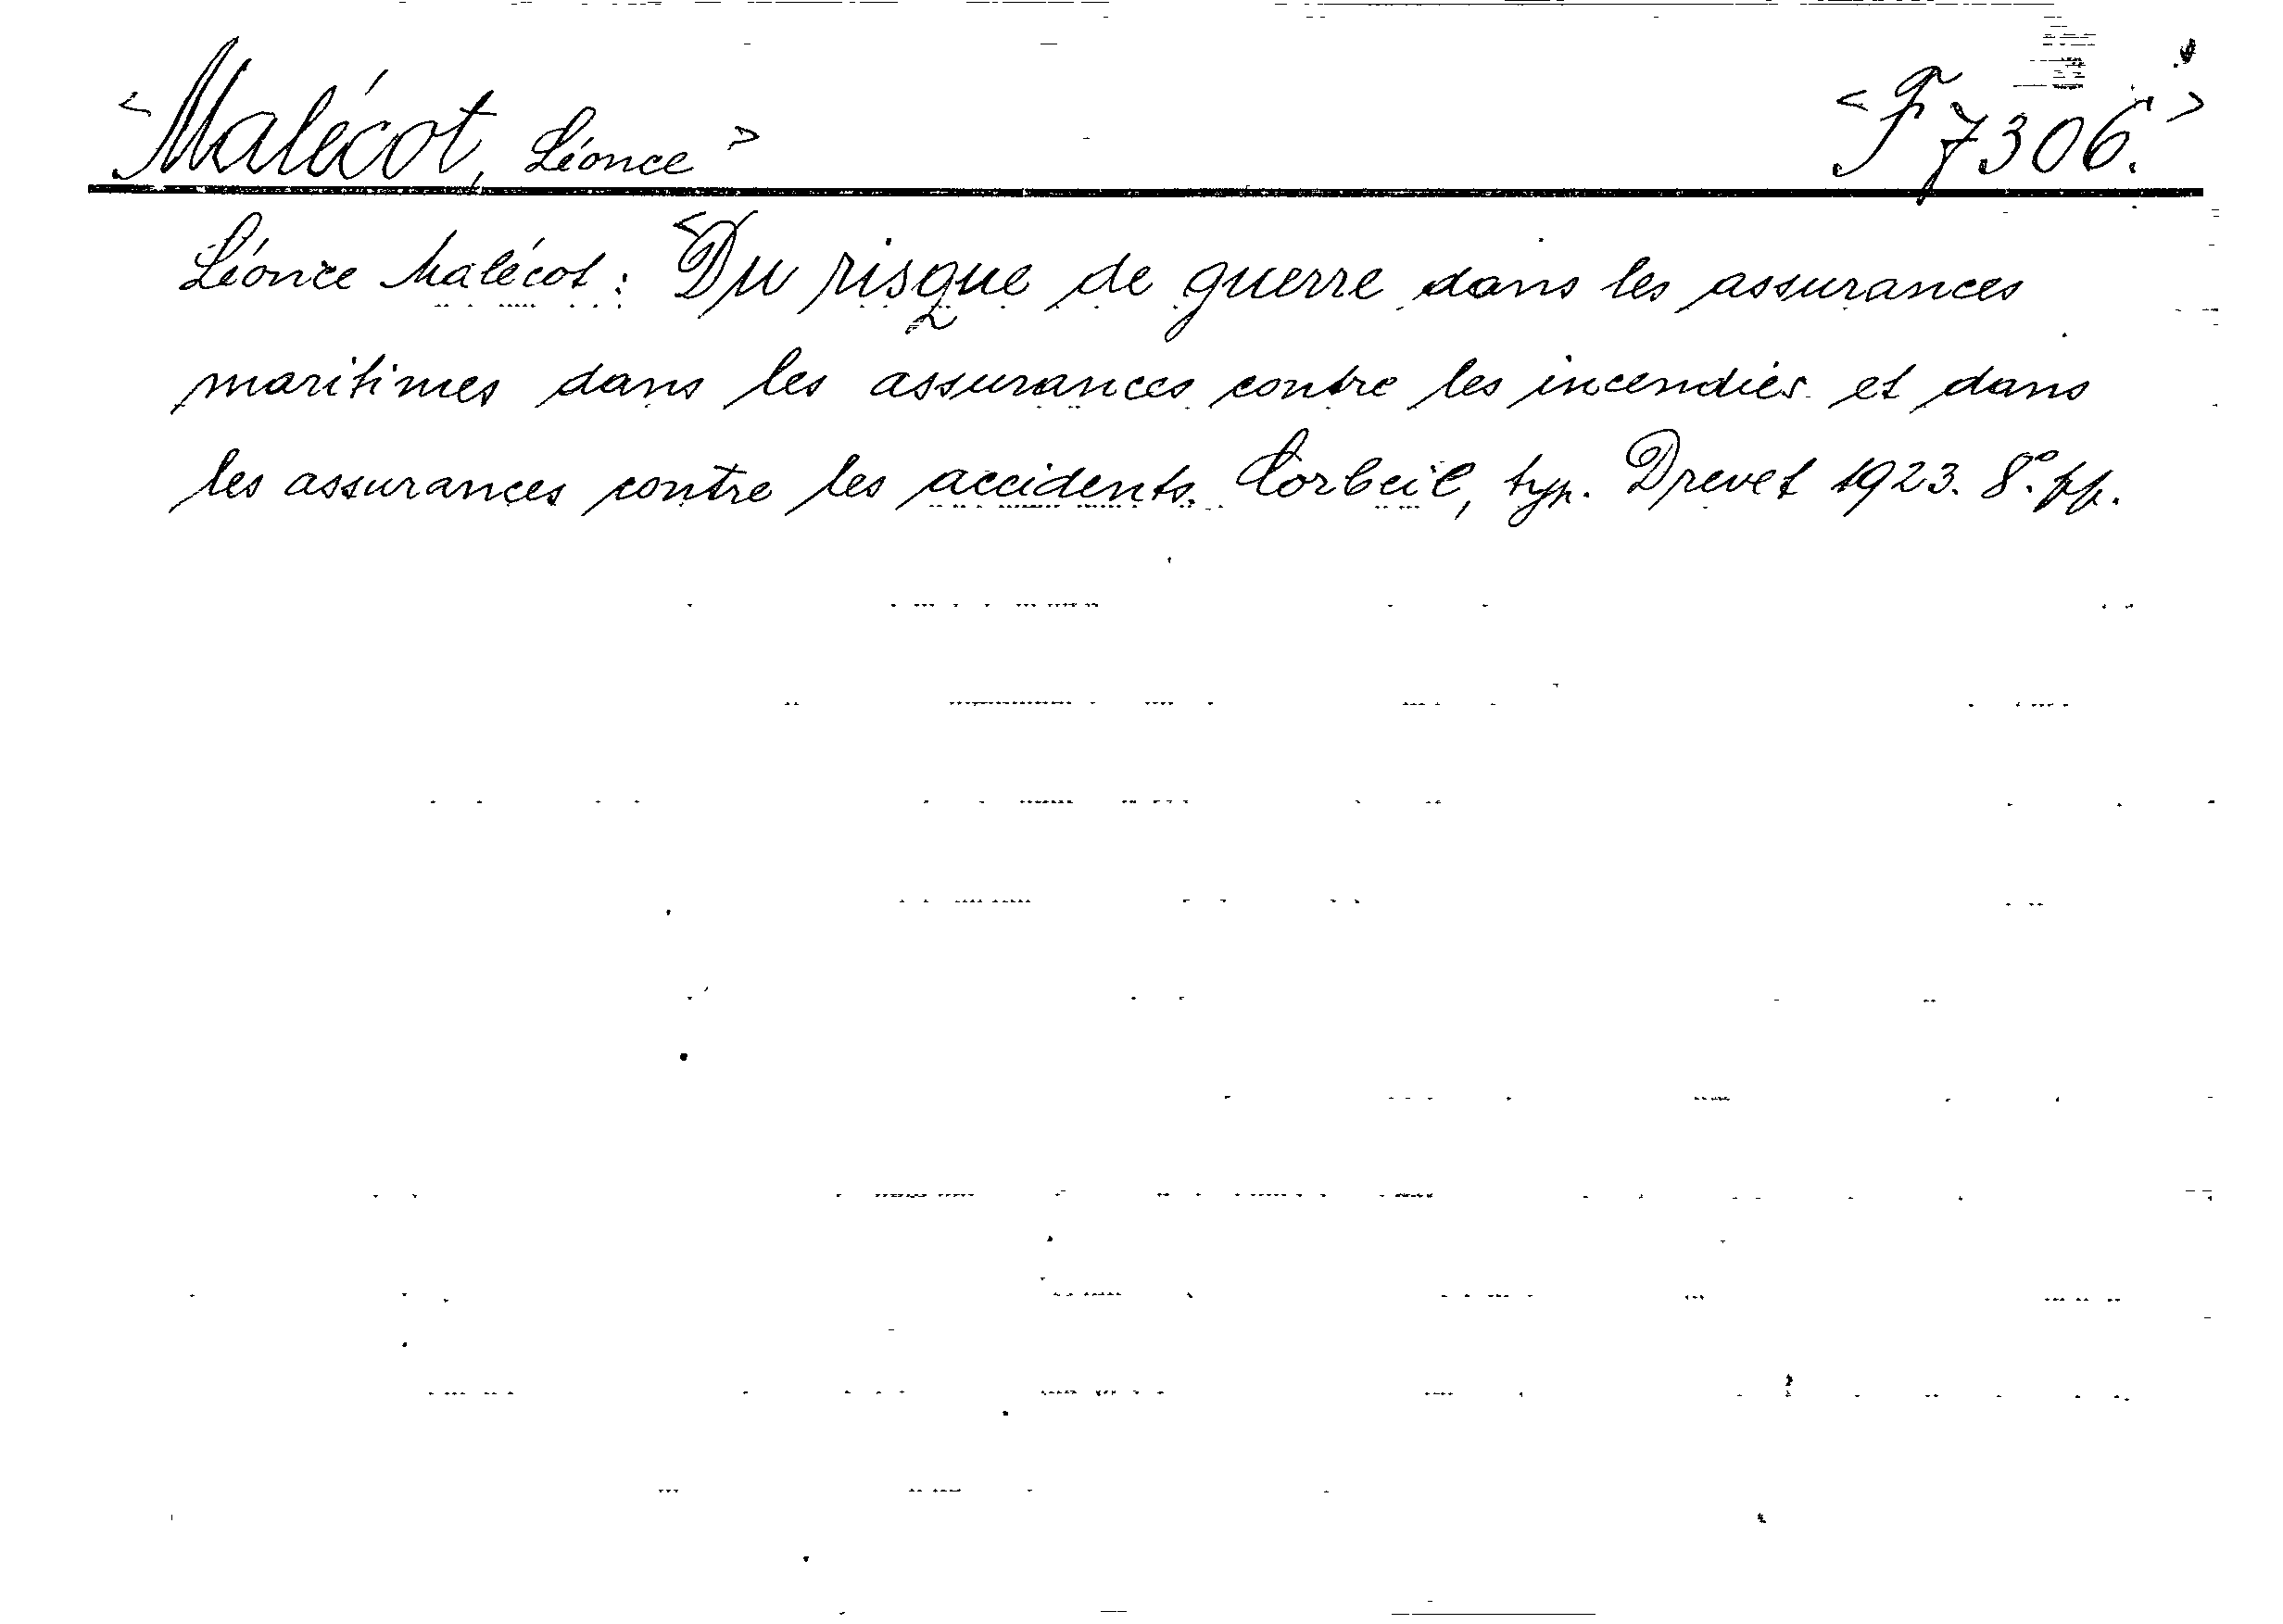 <Malécot, Léonce> <F 7306.>
Léonce Malécot: <Du risque de guerre dans les assurances
maritimes dans les assurances contre les incendies et dans
les assurances contre les accidents. Corbeil, typ. Drevet 1923. 8° pp.